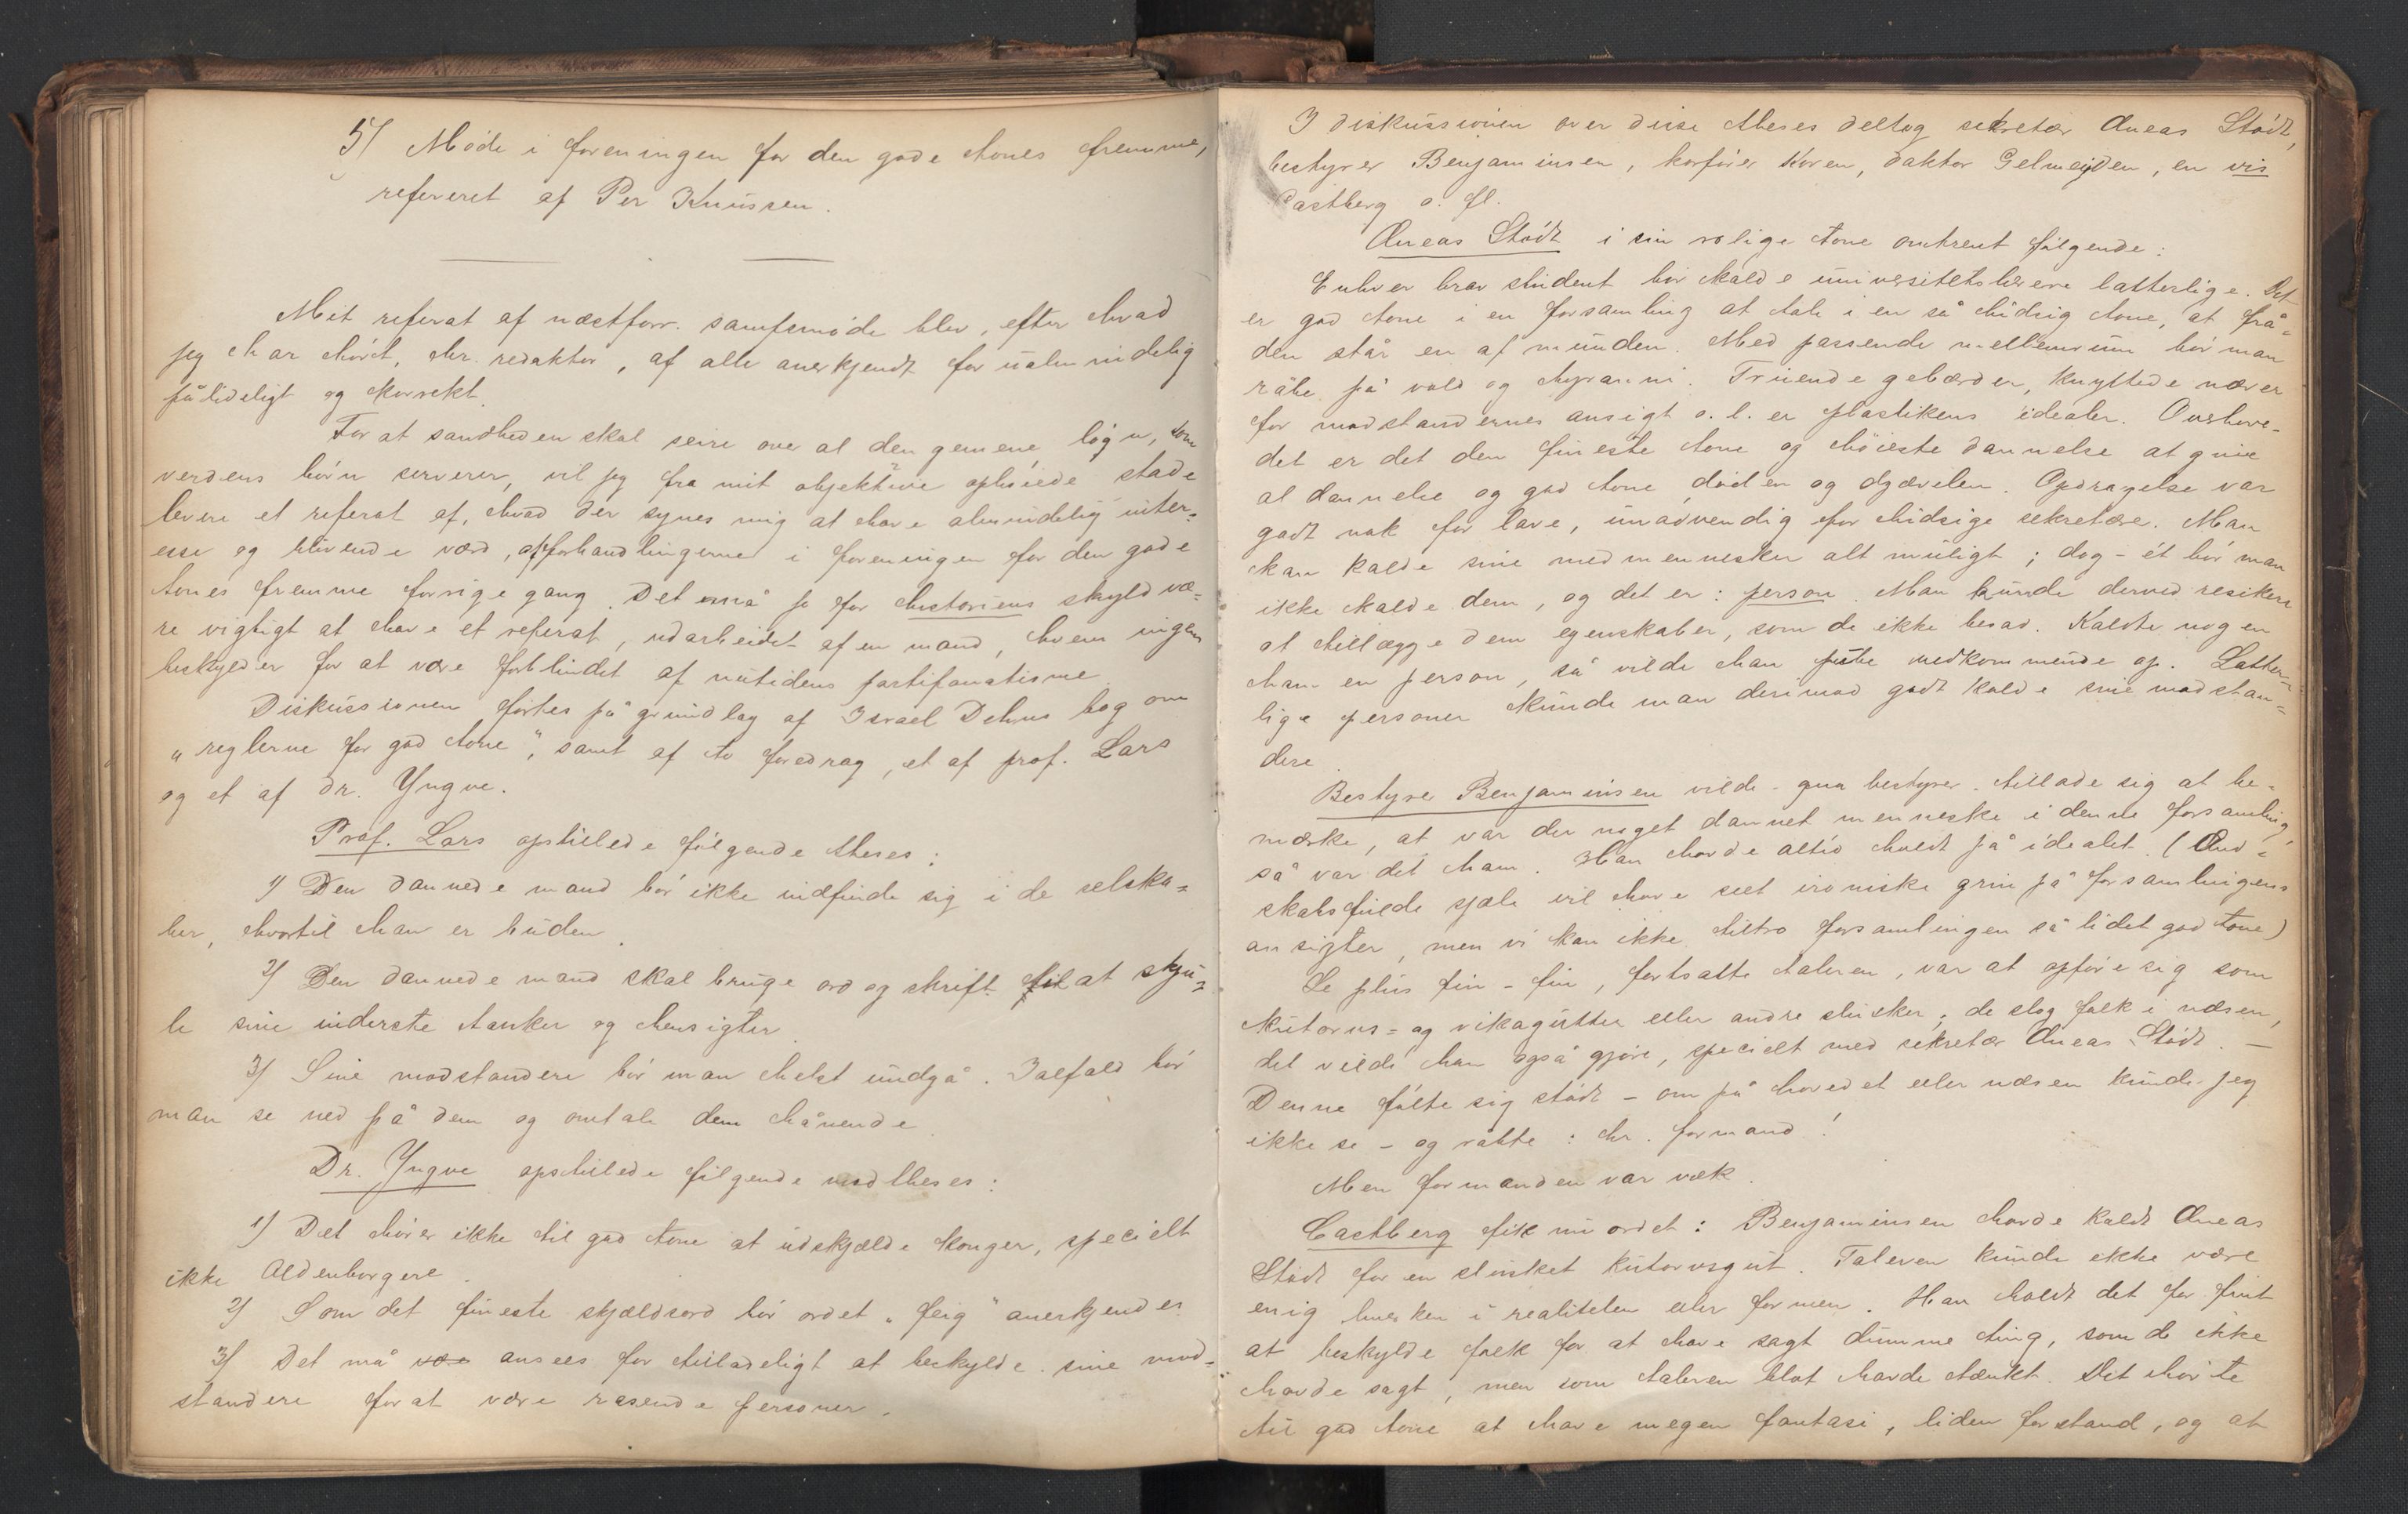 5) Møde i foreningen for den gode tones fremme,
refereret af Per Knussen.
Mit referat af næstforr. samfsmøde blev, efter hvad
jeg har hørt, hr. redaktør, af alle anerkjendt for ualmindelig
pålideligt og korrekt.
For at sandheden skal seire over al den gemene løgn, som
verdens børn serverer, vil jeg fra mit objektive ophøiede stade
levere et referat af, hvad der synes mig at have almindelig inter-
esse og blivende værd, af forhandlingerne i foreningen for den gode
tones fremme forrige gang. Det må jo for historiens skyld væ-
re vigtigt at have et referat, udarbeidet af en mand, hvem ingen
beskylder for at være forblindet af nutidens partifanatisme.
Diskussionen førtes på grundlag af Israel Dehns bog om
"reglerne for god tone", samt af to foredrag, et af prof. Lars
og et af dr. Yngve.
Prof. Lars opstillede følgende theses:
1) Den dannede mand bør ikke indfinde sig i de selska-
ber, hvortil han er buden.
2) Den dannede mand skal bruge ord og skrift til at skju-
le sine inderste tanker og hensigter.
3) Sine modstandere bør man helst undgå. Ialfald bør
man se ned på dem og omtale dem hånende.
Dr. Yngve opstillede følgende modtheses:
1) Det hører ikke til god tone at udskjælde konger, specielt
ikke Oldenborgere.
2) Som det fineste skjældsord bør ordet "feig" anerkjendes.
3) Det må være ansees for tilladeligt at beskylde sine mod-
standere for at være rasende personer.
I diskussionen over disse theses deltog sekretær Æneas Stødt,
bestyrer Benjaminsen, korfører Koren, doktor Gelmeyden, en vis
Castberg o. fl.
Æneas Stødt i sin rolige tone omtrent følgende:
Enhver brav student bør kalde universitetslærere latterlige. Det
er god tone i en forsamling at tale i en så hidsig tone, at frå-
den står en af munden. Med passende mellemrum bør man
råbe på vold og tyranni. Truende gebærder, knyttede næver
for modstandernes ansigt o. l. er plastikens idealer. Overhove-
det er det den fineste tone og høieste dannelse at give
al dannelse og god tone døden og djævelen. Opdragelse var
godt nok for lave, unødvendig for hidsige sekretære. Man
kan kalde sine medmennesker alt muligt; dog - ét bør man
ikke kalde dem, og det er: person. Man kunde derved resikere
at tillægge dem egenskaber, som de ikke besad. Kaldte nogen
ham en person, så vilde han pibe vedkommende op. Latter-
lige personer kunde man derimod godt kalde sine modstan-
dere.
Bestyrer Benjaminsen vilde - qua bestyrer - tillade sig at be-
mærke, at var der noget dannet menneske i denne forsamling,
så var det ham. Han havde altid holdt på idealet. (Ond-
skabsfulde sjæle vil have seet ironiske grin på forsamlingens
ansigter, men vi kan ikke tiltro forsamlingen så lidet god tone)
Le plus fin - fin, fortsatte taleren, var at opføre sig som
kutorvs- og vikagutter eller andre slusker; de slog folk i næsen,
det vilde han også gjøre, specielt med sekretær Æneas Stødt. —
Denne følte sig stødt - om på hovedet eller næsen kunde jeg
ikke se - og råbte: hr. formand!
Men formanden var væk.
Castberg fik nu ordet: Benjaminsen havde kaldt Æneas
Stødt for en slusket kutorvsgut. Taleren kunde ikke være
enig hverken i realiteten eller formen. Han holdt det for fint
at beskylde folk for at have sagt dumme ting, som de ikke
havde sagt, men som taleren blot havde tænkt. Det hørte
til god tone at have megen fantasi, liden forstand, og at